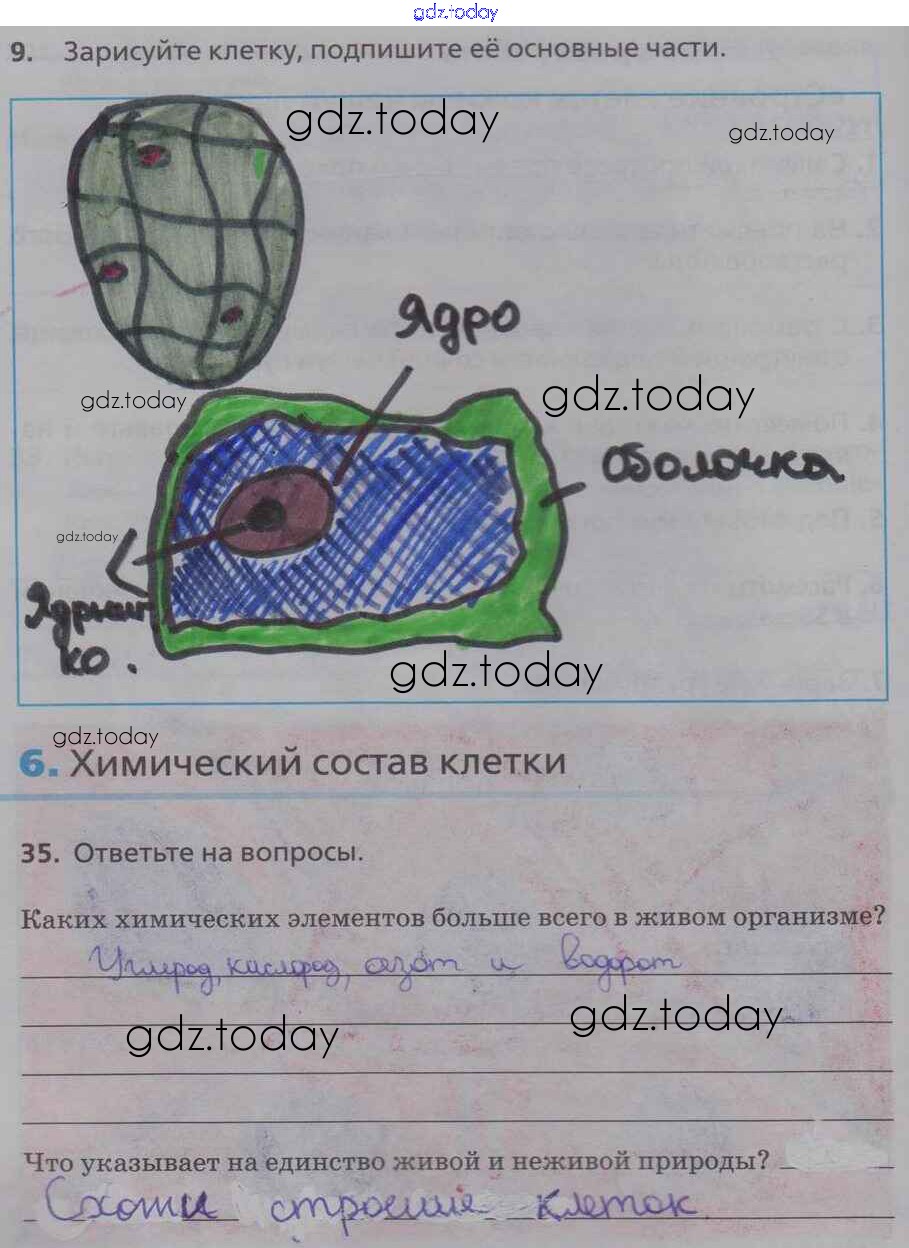 gdz.today
9. Зарисуйте клетку, подпишите её основные части.
gdz.today
gdz.today
Ядро
gdz.today
gdz.today
Оболочка
gdz.today
Ядрыш
ко.
gdz.today
gdz.today
6. Химический состав клетки
35. Ответьте на вопросы.
Каких химических элементов больше всего в живом организме?
Углерод, кислород, азот и водорот
gdz.today
gdz.today
Что указывает на единство живой и неживой природы?
строение клеток